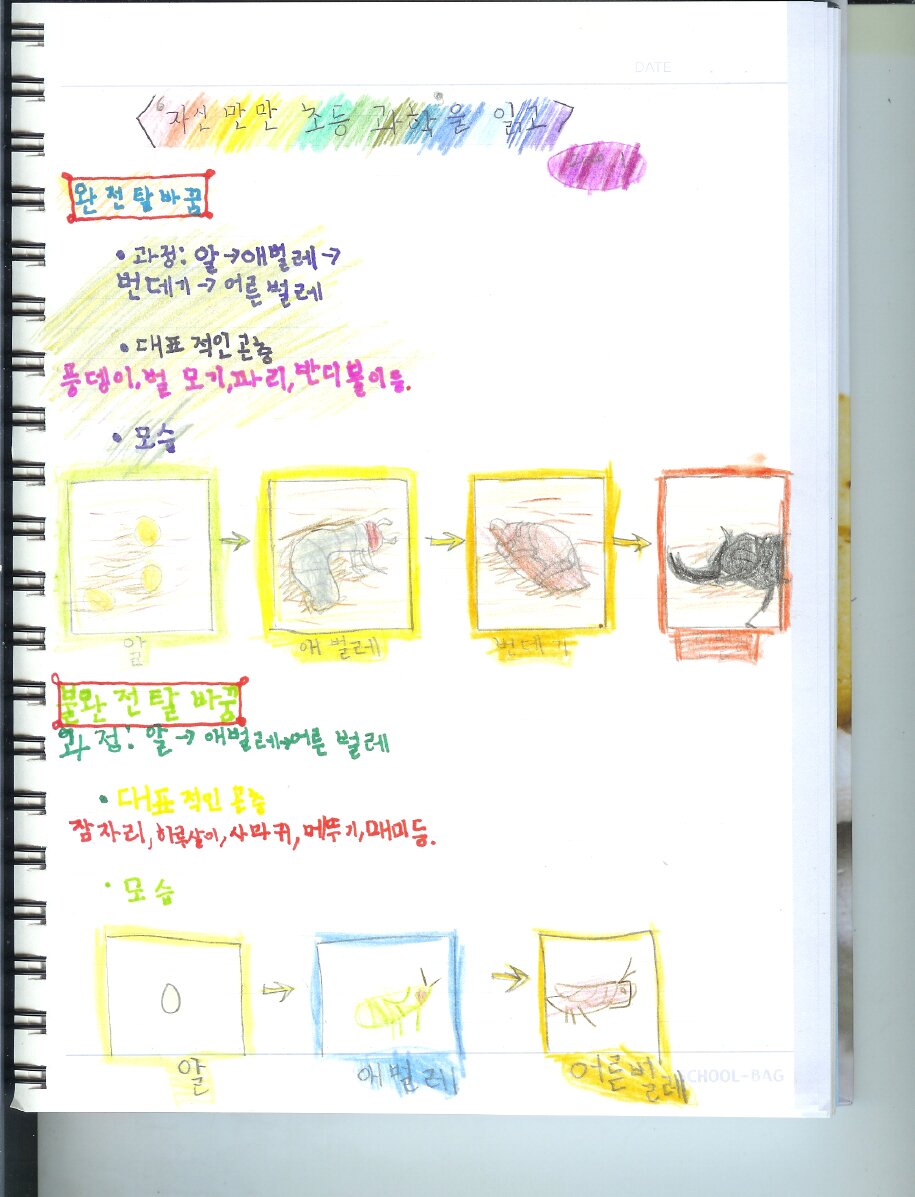 DATE
자신만만 초등 과학을 읽고
완전탈바꿈
• 과정: 알→애벌레→
번데기→어른벌레
• 대표적인곤충
풍뎅이,벌 모기,파리,반디불이등.
• 모습
알 애벌레 번데기
불완전탈바꿈
과정: 알→애벌레→어른벌레
• 대표적인 곤충
잠자리,하루살이,사마귀,메뚜기,매미등.
• 모습
알 애벌레 어른벌레
CHOOL-BAG